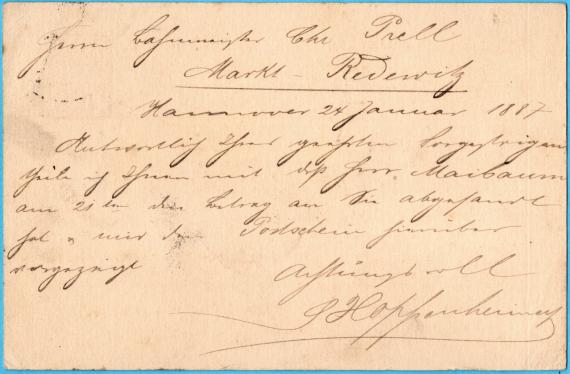 Herrn Bahnmeister Chr Prell
Markt-Redewitz
Hannover 24 Januar 1887
Antwortlich Ihres geehrten Vorgestrigen
theile ich Ihnen mit daß Herr Maibaum
am 21ten den Betrag an Sie abgesandt
hat & mir den Postschein hierüber
vorgezeigt
Achtungsvoll
S Hoppenheimer